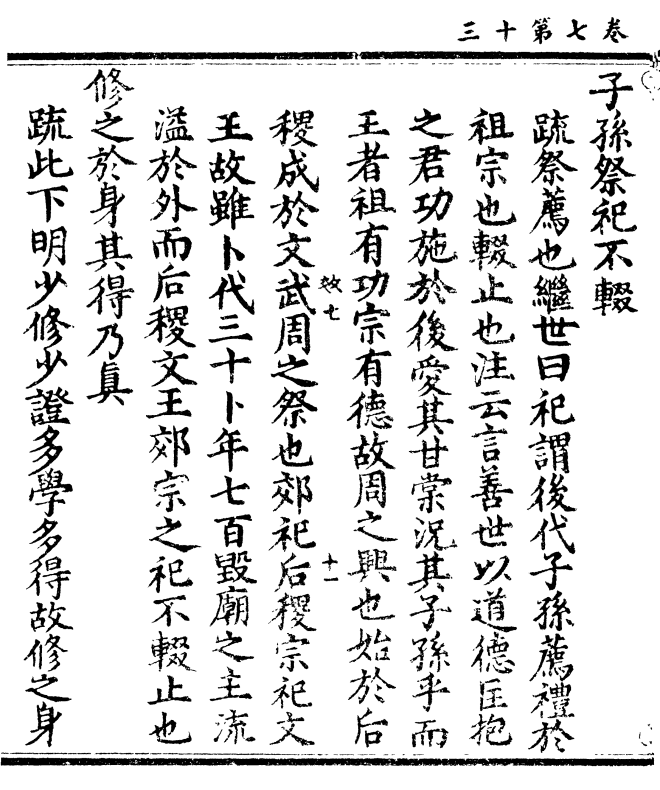 三十第七卷
子孫祭祀不輟
疏祭薦也繼世曰祀謂後代子孫薦禮於
祖宗也輟止也注云言善世以道德匡抱
之君功施於後愛其甘棠況其子孫乎而
王者祖有功宗有德故周之興也始於后
稷成於文武周之祭也郊祀后稷宗祀文
效七
十一
王故雖卜代三十卜年七百毀廟之主流
溢於外而后稷文王郊宗之祀不輟止也
修之於身其得乃真
疏此下明少修少證多學多得故修之身